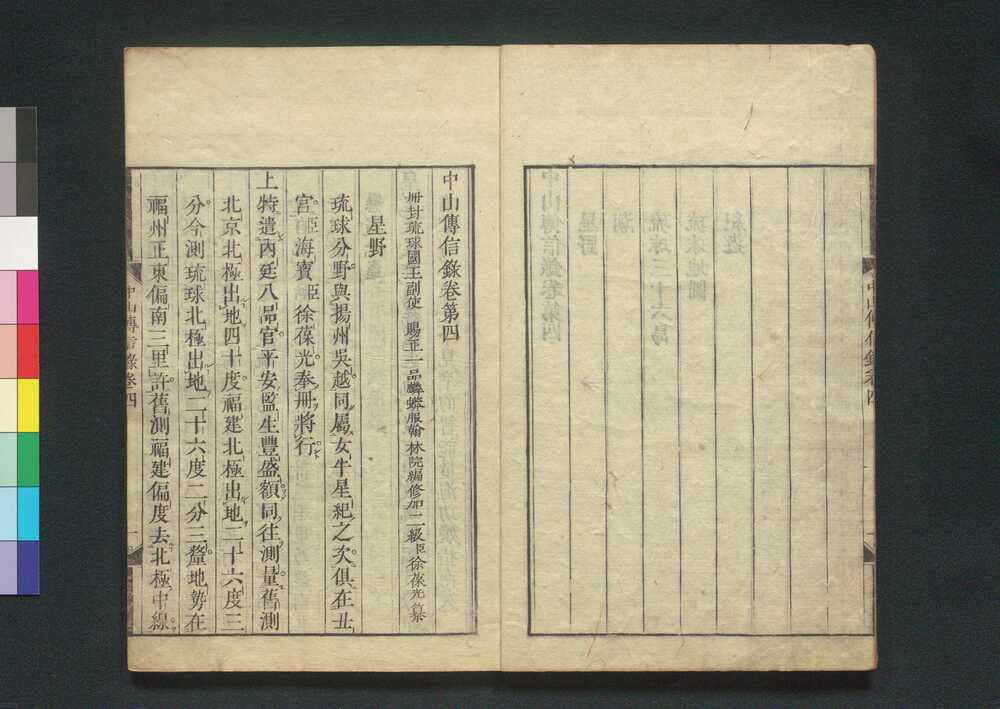 中山傳信錄卷四
中山傳信錄卷第四
冊封琉球國王副使 賜正一品麟蟒服翰林院編修加二級臣徐葆光纂
星野
琉球分野與揚州吳越同屬女牛星紀之次俱在丑
宮臣海寶臣徐葆光奉冊將行
上特遣內廷八品官平安監生豐盛額同往測量舊測
北京北極出地四十度福建北極出地二十六度三
分今測琉球北極出地二十六度二分三釐地勢在
福州正東偏南三里許舊測福建偏度去北極中線
中山傳信錄卷四
一